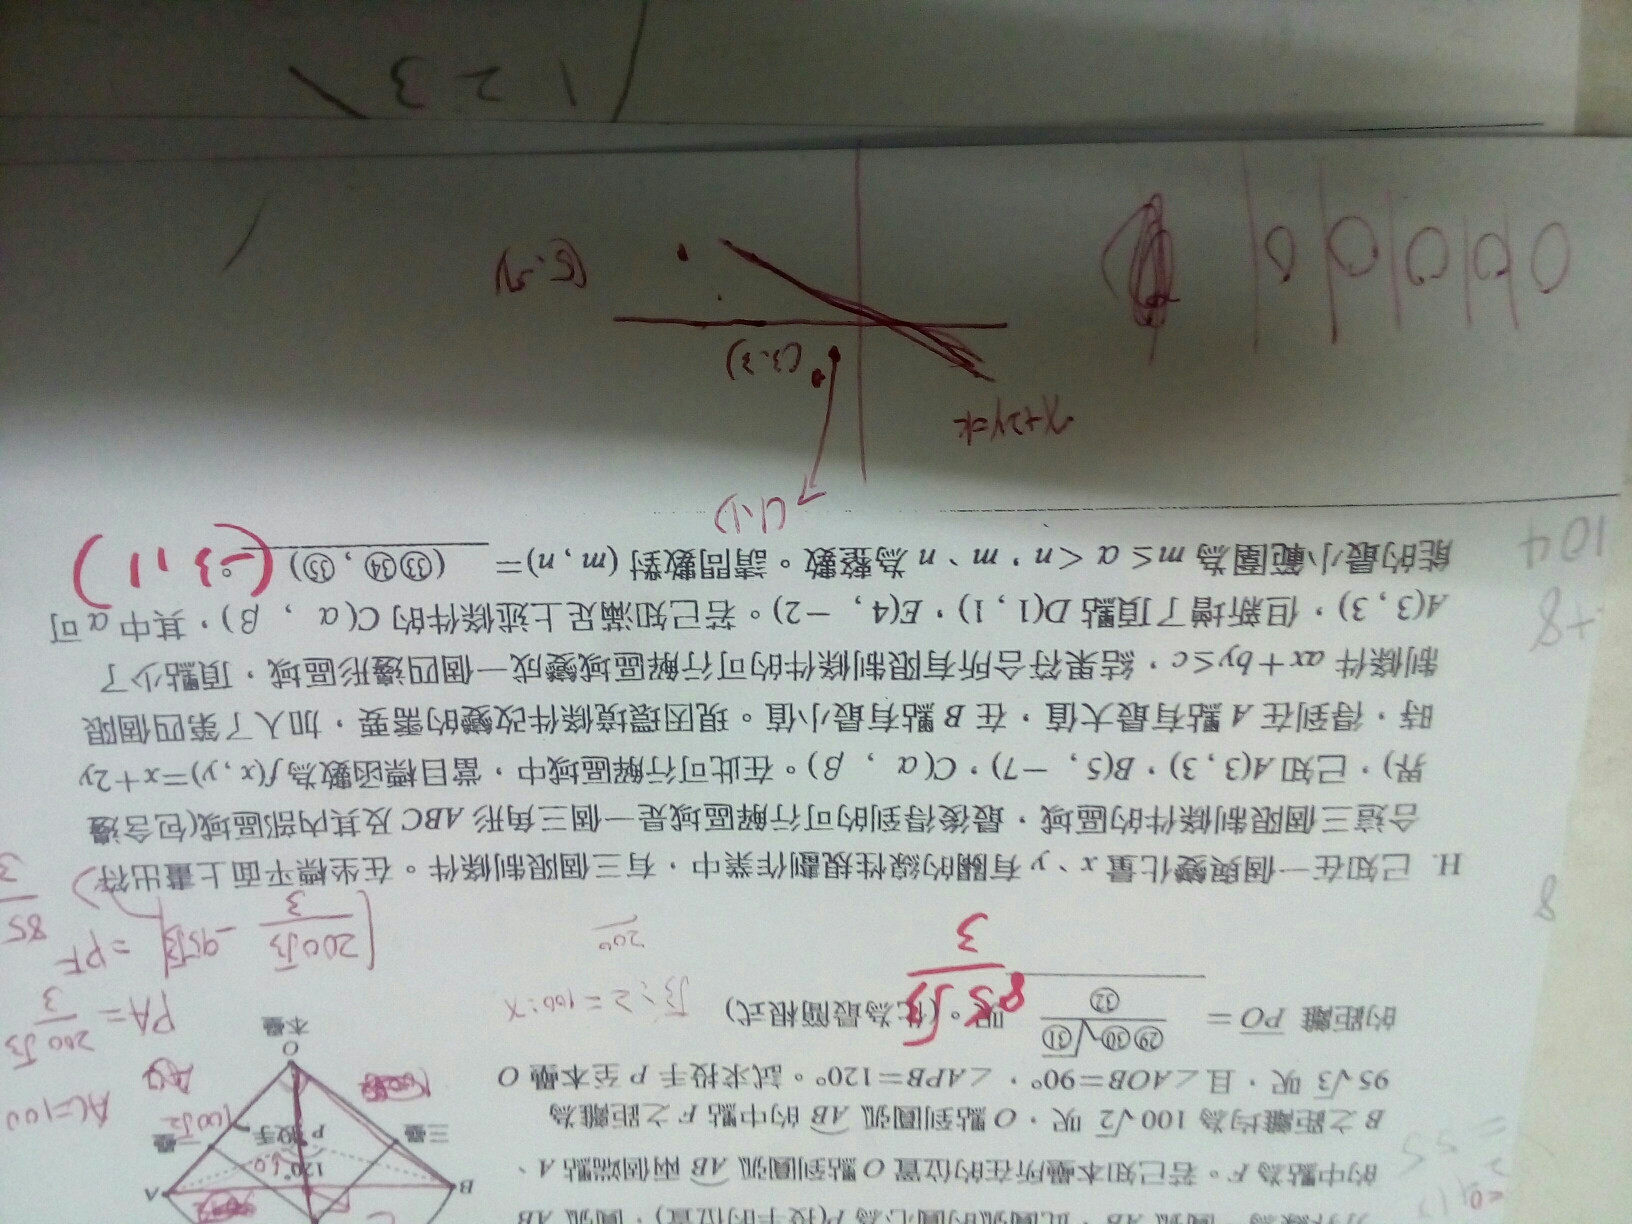 方外野為一圓弧 AB，此圓弧的圓心為 P(投手的位置)，圓弧 AB
的中點為 F。若已知本壘所在的位置 O 點到圓弧 AB 兩個端點 A、
B 之距離均為 100√2 呎，O 點到圓弧 AB 的中點 F 之距離為
95√3 呎，且∠AOB=90°，∠APB=120°。試求投手 P 至本壘 O
的距離 PO = ㉙㉚√㉛/㉜ 呎。(化為最簡根式)
85√3/3
√3:2=100:x
200
B
A
120°
60
P 投手
三壘
一壘
100√2
O
本壘
AC=100
PA= 200√3/3
[200√3/3 - 95√3] =PF
85
3
8
H. 已知在一個與變化量 x、y 有關的線性規劃作業中，有三個限制條件。在坐標平面上畫出符
合這三個限制條件的區域，最後得到的可行解區域是一個三角形 ABC 及其內部區域(包含邊
界)，已知 A(3, 3)，B(5, −7)，C(α, β)。在此可行解區域中，當目標函數為 f(x, y)=x+2y
時，得到在 A 點有最大值，在 B 點有最小值。現因環境條件改變的需要，加入了第四個限
制條件 ax+by≤c，結果符合所有限制條件的可行解區域變成一個四邊形區域，頂點少了
A(3, 3)，但新增了頂點 D(1, 1)，E(4, −2)。若已知滿足上述條件的 C(α, β)，其中 α 可
能的最小範圍為 m≤α<n，m、n 為整數。請問數對 (m, n)= (㉝㉞, ㉟)
(-3,1)
+8
104
(1,1)
x+2y=k
(3,3)
(5,-7)
0 0 0 0 0
1 2 3